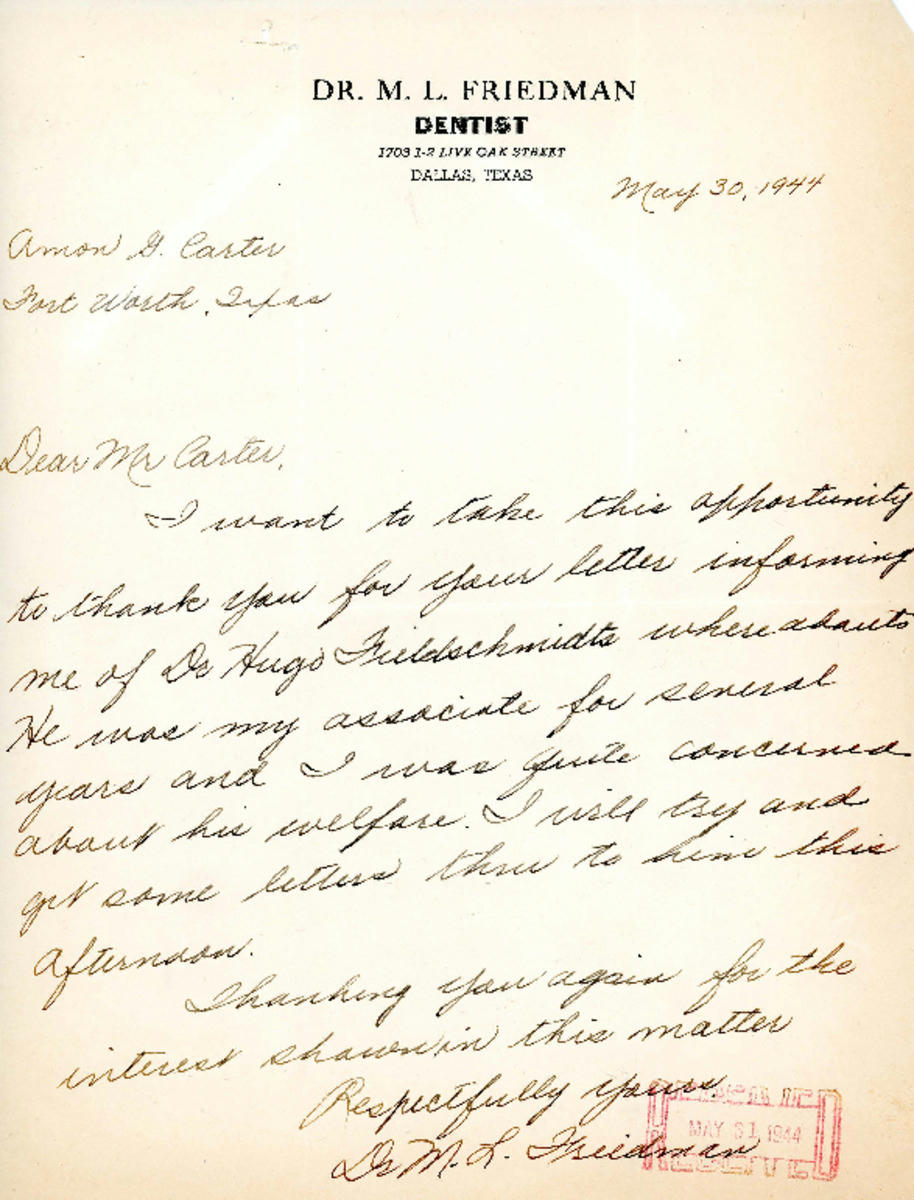 DR. M. L. FRIEDMAN
DENTIST
1703 1-2 LIVE OAK STREET
DALLAS, TEXAS
May 30, 1944
Amon G. Carter
Fort Worth, Texas
Dear Mr Carter,
I want to take this opportunity
to thank you for your letter informing
me of Dr Hugo Fieldschmidts where abouts
He was my associate for several
years and I was quite concerned
about his welfare. I will try and
get some letters thru to him this
afternoon.
Thanking you again for the
interest shown in this matter
Respectfully yours
Dr M. L. Friedman
MAY 31 1944